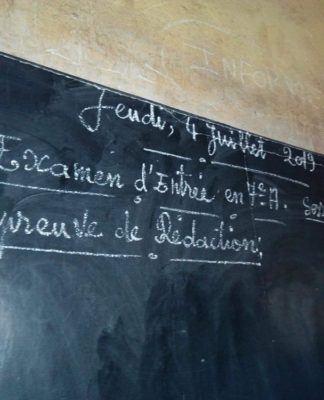 INFOR
Jeudi, 4 Juillet 2019
Examen d'Entrée en 7e A.
Epreuve de Rédaction.